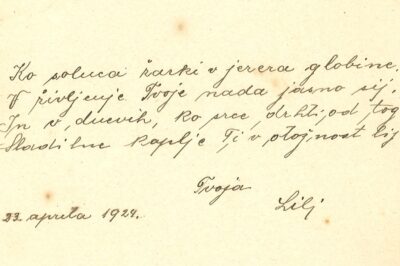 Ko solnca žarki v jezera globine,
V življenje Tvoje nada jasno sij,
In v dnevih, ko srce drhti od tog
Hladilne kaplje Ti v otožnost lij
Tvoja
Lilj
23. aprila 1924.